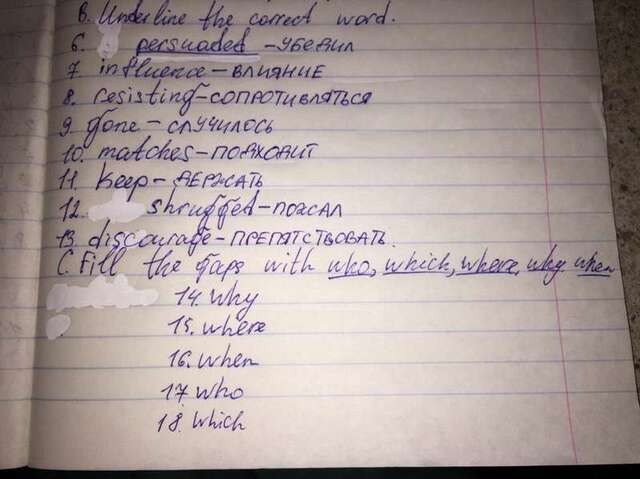 B. Underline the correct word.
6. persuaded - УБЕДИЛ
7. influence - ВЛИЯНИЕ
8. resisting - СОПРОТИВЛЯТЬСЯ
9. gone - СЛУЧИЛОСЬ
10. matches - ПОДХОДИТ
11. keep - ДЕРЖАТЬ
12. shrugged - ПОЖАЛ
13. discourage - ПРЕПЯТСТВОВАТЬ.
C. Fill the gaps with who, which, where, why when
14. why
15. where
16. when
17. who
18. which